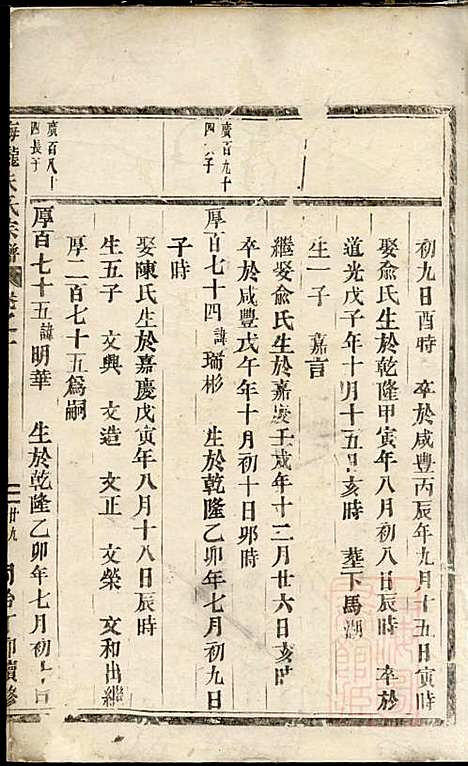 初九日酉時　卒於咸豐丙辰年九月十五日寅時
娶俞氏生於乾隆甲寅年八月初八日辰時　卒於
道光戊子年十月十五日亥時　塟下馬湖
生一子　嘉言
繼娶俞氏生於嘉慶壬戌年十二月廿六日亥時
卒於咸豐戊午年十月初十日邜時
廣百九十
四　子
厚百七十四諱瑞彬　生於乾隆乙卯年七月初九日
子時
娶陳氏生於嘉慶戊寅年八月十八日辰時
生五子　文興　文造　文正　文榮　文和出繼
厚二百七十五爲嗣
廣百八十
四長子
厚百七十五諱明華　生於乾隆乙卯年七月初　日
氏宗譜
廿九
續修